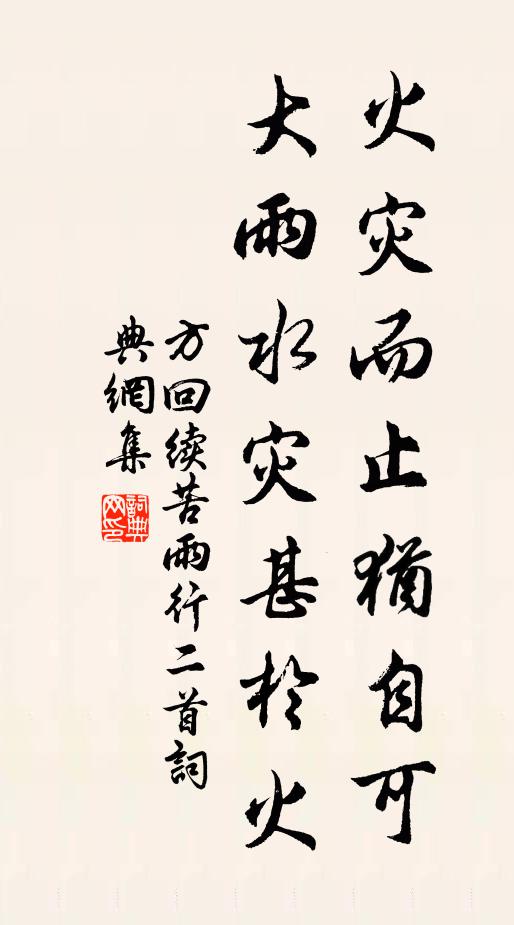 火灾而止犹自可
大雨水灾甚於火
方回續苦雨行二首詞
典網集
詞典网印